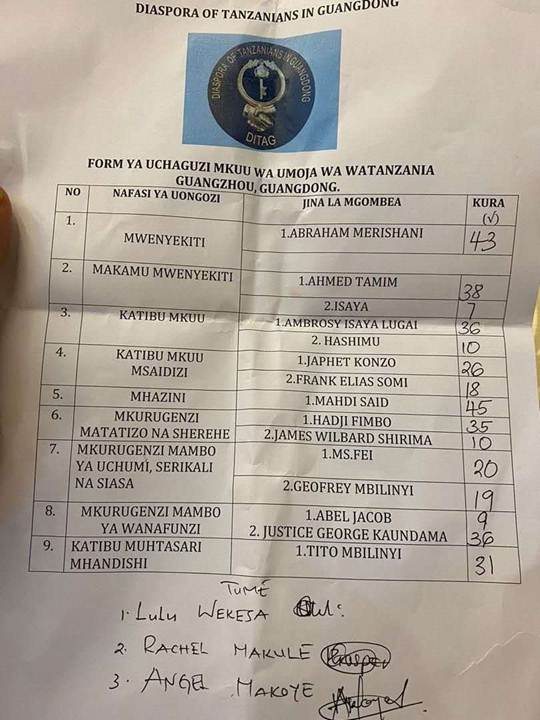 DIASPORA OF TANZANIANS IN GUANGDONG
DIASPORA OF TANZANIANS IN GUANGDONG
DITAG
FORM YA UCHAGUZI MKUU WA UMOJA WA WATANZANIA
GUANGZHOU, GUANGDONG.
NO NAFASI YA UONGOZI JINA LA MGOMBEA KURA
(√)
1. MWENYEKITI 1.ABRAHAM MERISHANI 43
2. MAKAMU MWENYEKITI 1.AHMED TAMIM 38
2.ISAYA 7
3. KATIBU MKUU 1.AMBROSY ISAYA LUGAI 36
2. HASHIMU 10
4. KATIBU MKUU 1.JAPHET KONZO 26
MSAIDIZI 2.FRANK ELIAS SOMI 18
5. MHAZINI 1.MAHDI SAID 45
6. MKURUGENZI 1.HADJI FIMBO 35
MATATIZO NA SHEREHE 2.JAMES WILBARD SHIRIMA 10
7. MKURUGENZI MAMBO 1.MS.FEI 20
YA UCHUMI, SERIKALI
NA SIASA 2.GEOFREY MBILINYI 19
8. MKURUGENZI MAMBO 1.ABEL JACOB 9
YA WANAFUNZI 2. JUSTICE GEORGE KAUNDAMA 36
9. KATIBU MUHTASARI 1.TITO MBILINYI 31
MHANDISHI
TUME
1. LULU WEKESA
2. RACHEL MAKULE
3. ANGEL MAKOYE